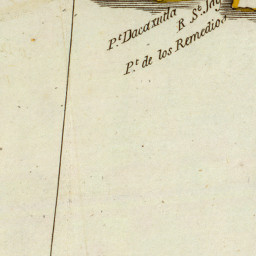 P.t Dacaxutla
R S.t Jag
P.t de los Remedios